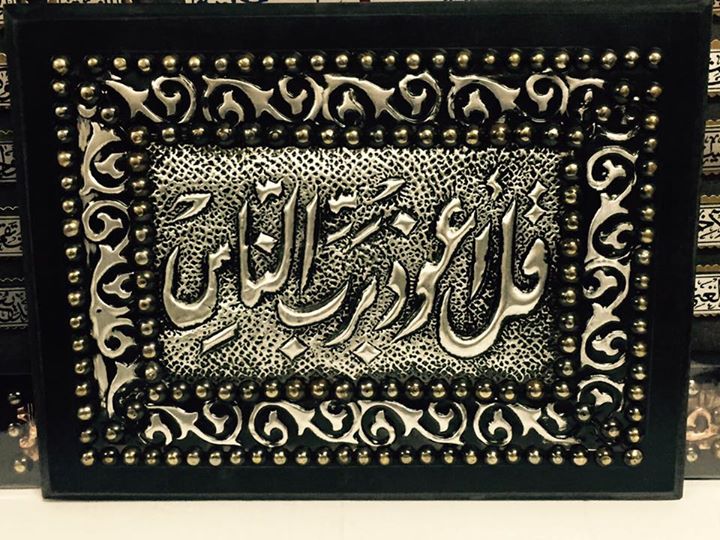 قل أعوذ بربِّ الناسِ